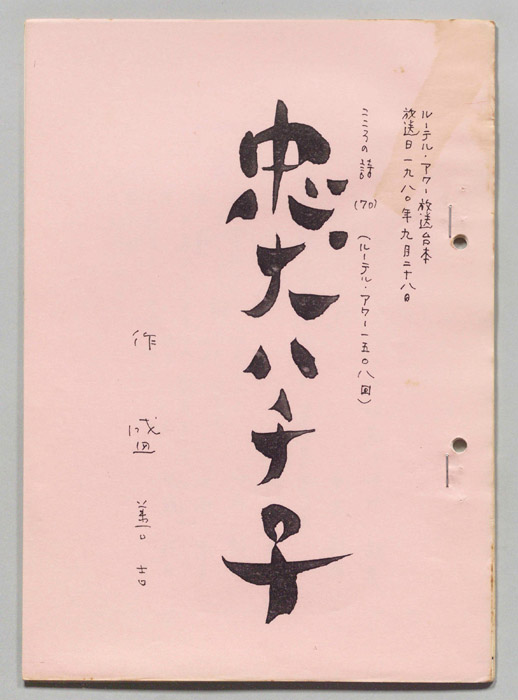 ルーテル・アワー放送台本
放送日 一九八〇年九月二十八日
こころの詩 (70) (ルーテル・アワー一五〇八回)
忠犬ハチ号
作 盛 善吉